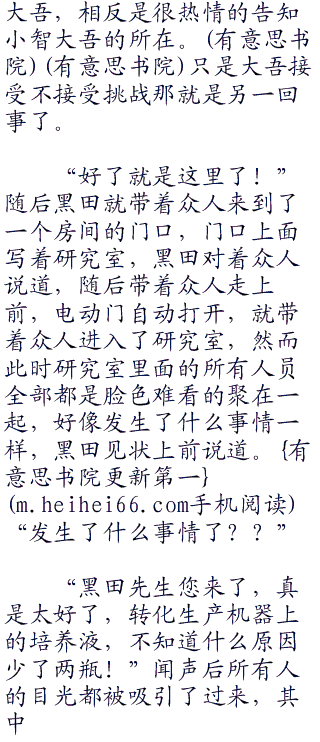 大吾，相反是很热情的告知
小智大吾的所在。(有意思书
院)(有意思书院)只是大吾接
受不接受挑战那就是另一回
事了。
“好了就是这里了！”
随后黑田就带着众人来到了
一个房间的门口，门口上面
写着研究室，黑田对着众人
说道，随后带着众人走上
前，电动门自动打开，就带
着众人进入了研究室，然而
此时研究室里面的所有人员
全部都是脸色难看的聚在一
起，好像发生了什么事情一
样，黑田见状上前说道。{有
意思书院更新第一}
(m.heihei66.com手机阅读)
“发生了什么事情了？？”
“黑田先生您来了，真
是太好了，转化生产机器上
的培养液，不知道什么原因
少了两瓶！”闻声后所有人
的目光都被吸引了过来，其
中